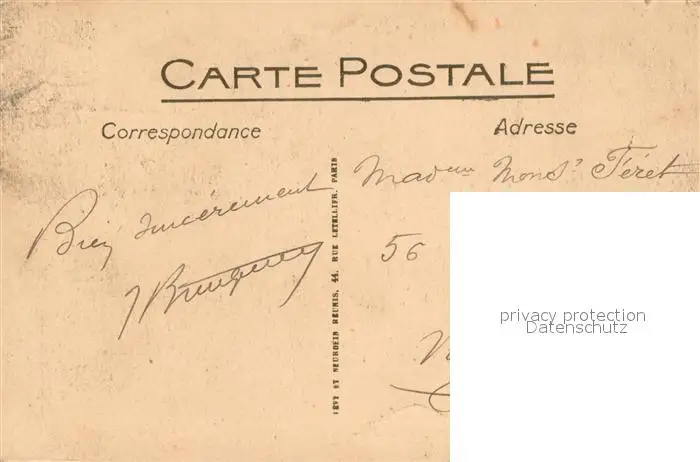 CARTE POSTALE
Correspondance
Adresse
Bien sincèrement
LÉVY ET NEURDEIN RÉUNIS, 44, RUE LETELLIER, PARIS
Mons.r Féret
56
privacy protection
Datenschutz